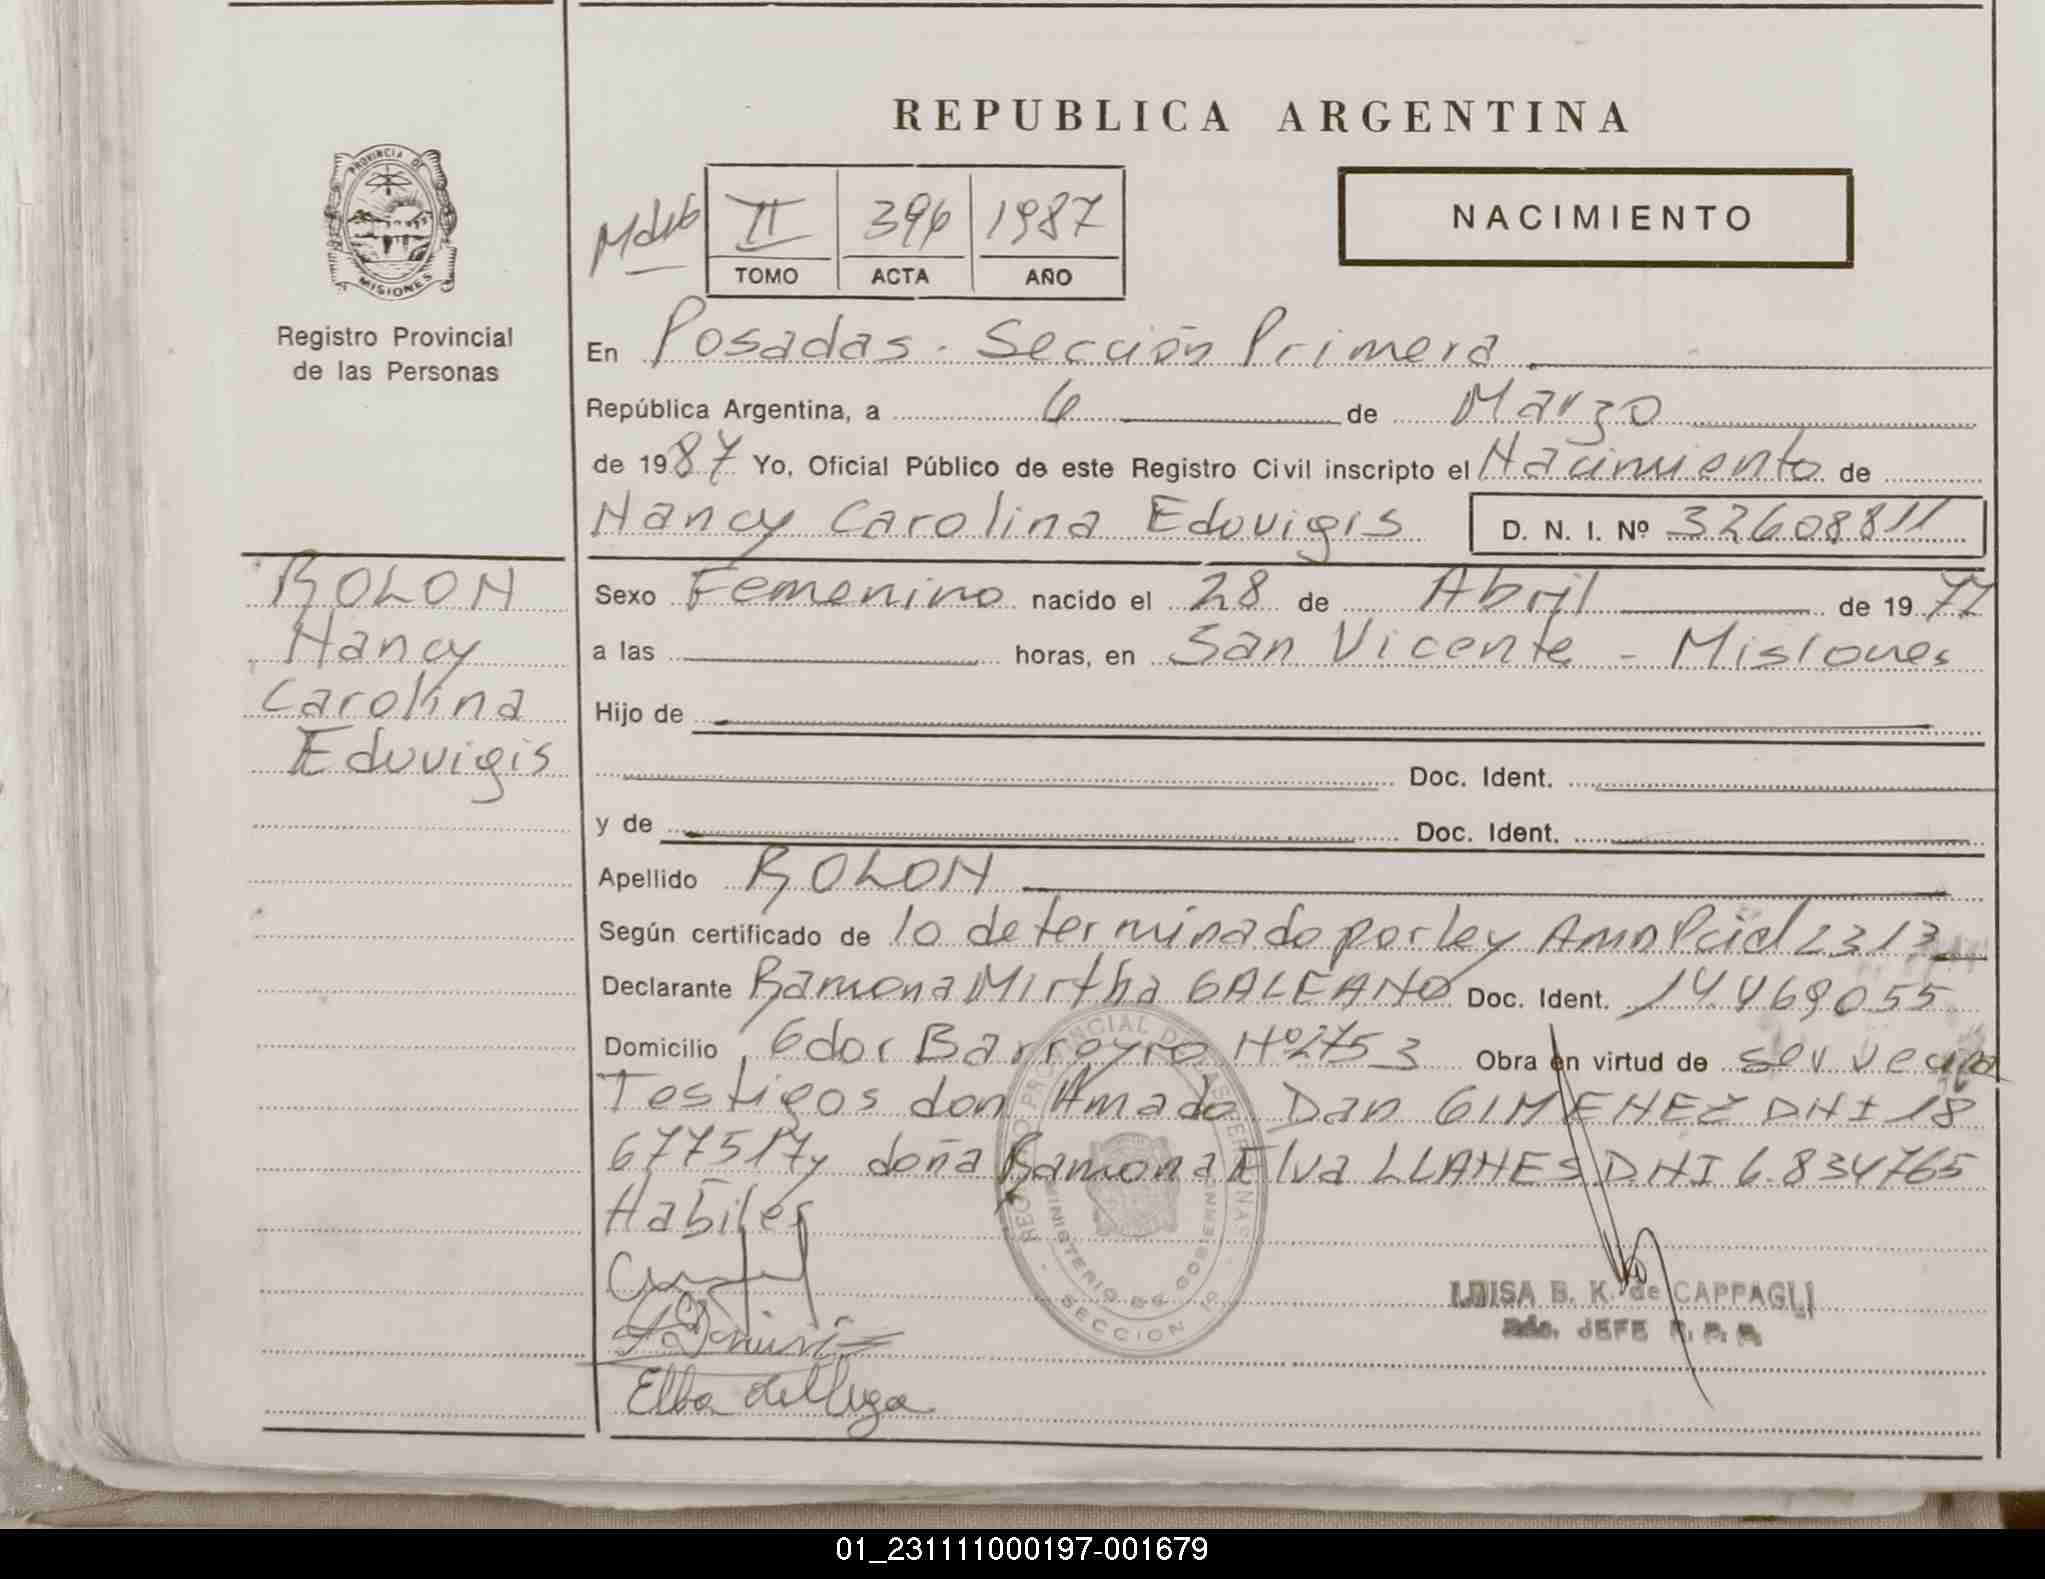 REPUBLICA ARGENTINA
PROVINCIA DE MISIONES
Registro Provincial
de las Personas
II 396 1987
TOMO ACTA AÑO
NACIMIENTO
En Posadas - Sección Primera
República Argentina, a 6 de Marzo
de 1987 Yo, Oficial Público de este Registro Civil inscripto el Nacimiento de
Nancy Carolina Eduvigis D. N. I. Nº 32608811
ROLON
Nancy
Carolina
Eduvigis
Sexo Femenino nacido el 28 de Abril de 1977
a las horas, en San Vicente - Misiones
Hijo de
Doc. Ident.
y de Doc. Ident.
Apellido ROLON
Según certificado de lo determinado por ley Amn Pcial 2313
Declarante Ramona Mirtha GALEANO Doc. Ident. 14469055
Domicilio Gdor Barreyro Nº 2753 Obra en virtud de ser vecina
Testigos don Amado Dan GIMENEZ DNI 18
677517 y doña Ramona Elva LLANES DNI 6.834765
Habiles
REGISTRO PROVINCIAL DE LAS PERSONAS
MINISTERIO DE GOBIERNO
SECCION 1º
LUISA B. K. de CAPPAGLI
JEFE R. P. P.
01_231111000197-001679